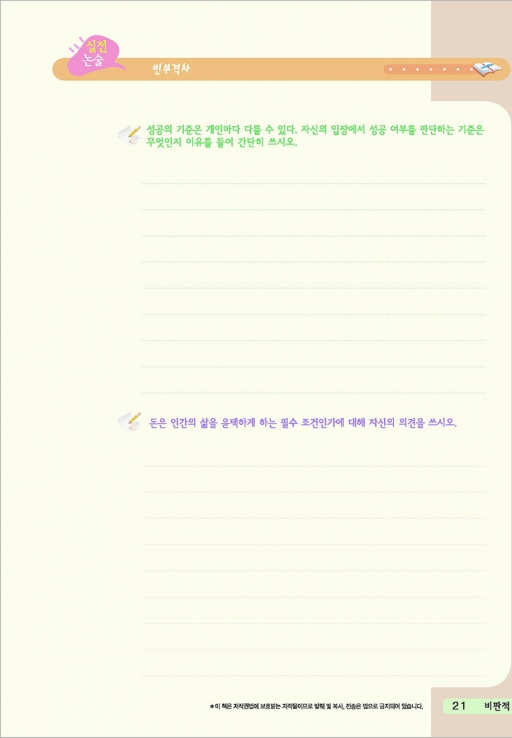 실전
논술
빈부격차
성공의 기준은 개인마다 다를 수 있다. 자신의 입장에서 성공 여부를 판단하는 기준은
무엇인지 이유를 들어 간단히 쓰시오.
돈은 인간의 삶을 윤택하게 하는 필수 조건인가에 대해 자신의 의견을 쓰시오.
*이 책은 저작권법에 보호받는 저작물이므로 발췌 및 복사, 전송은 법으로 금지되어 있습니다.
21 비판적